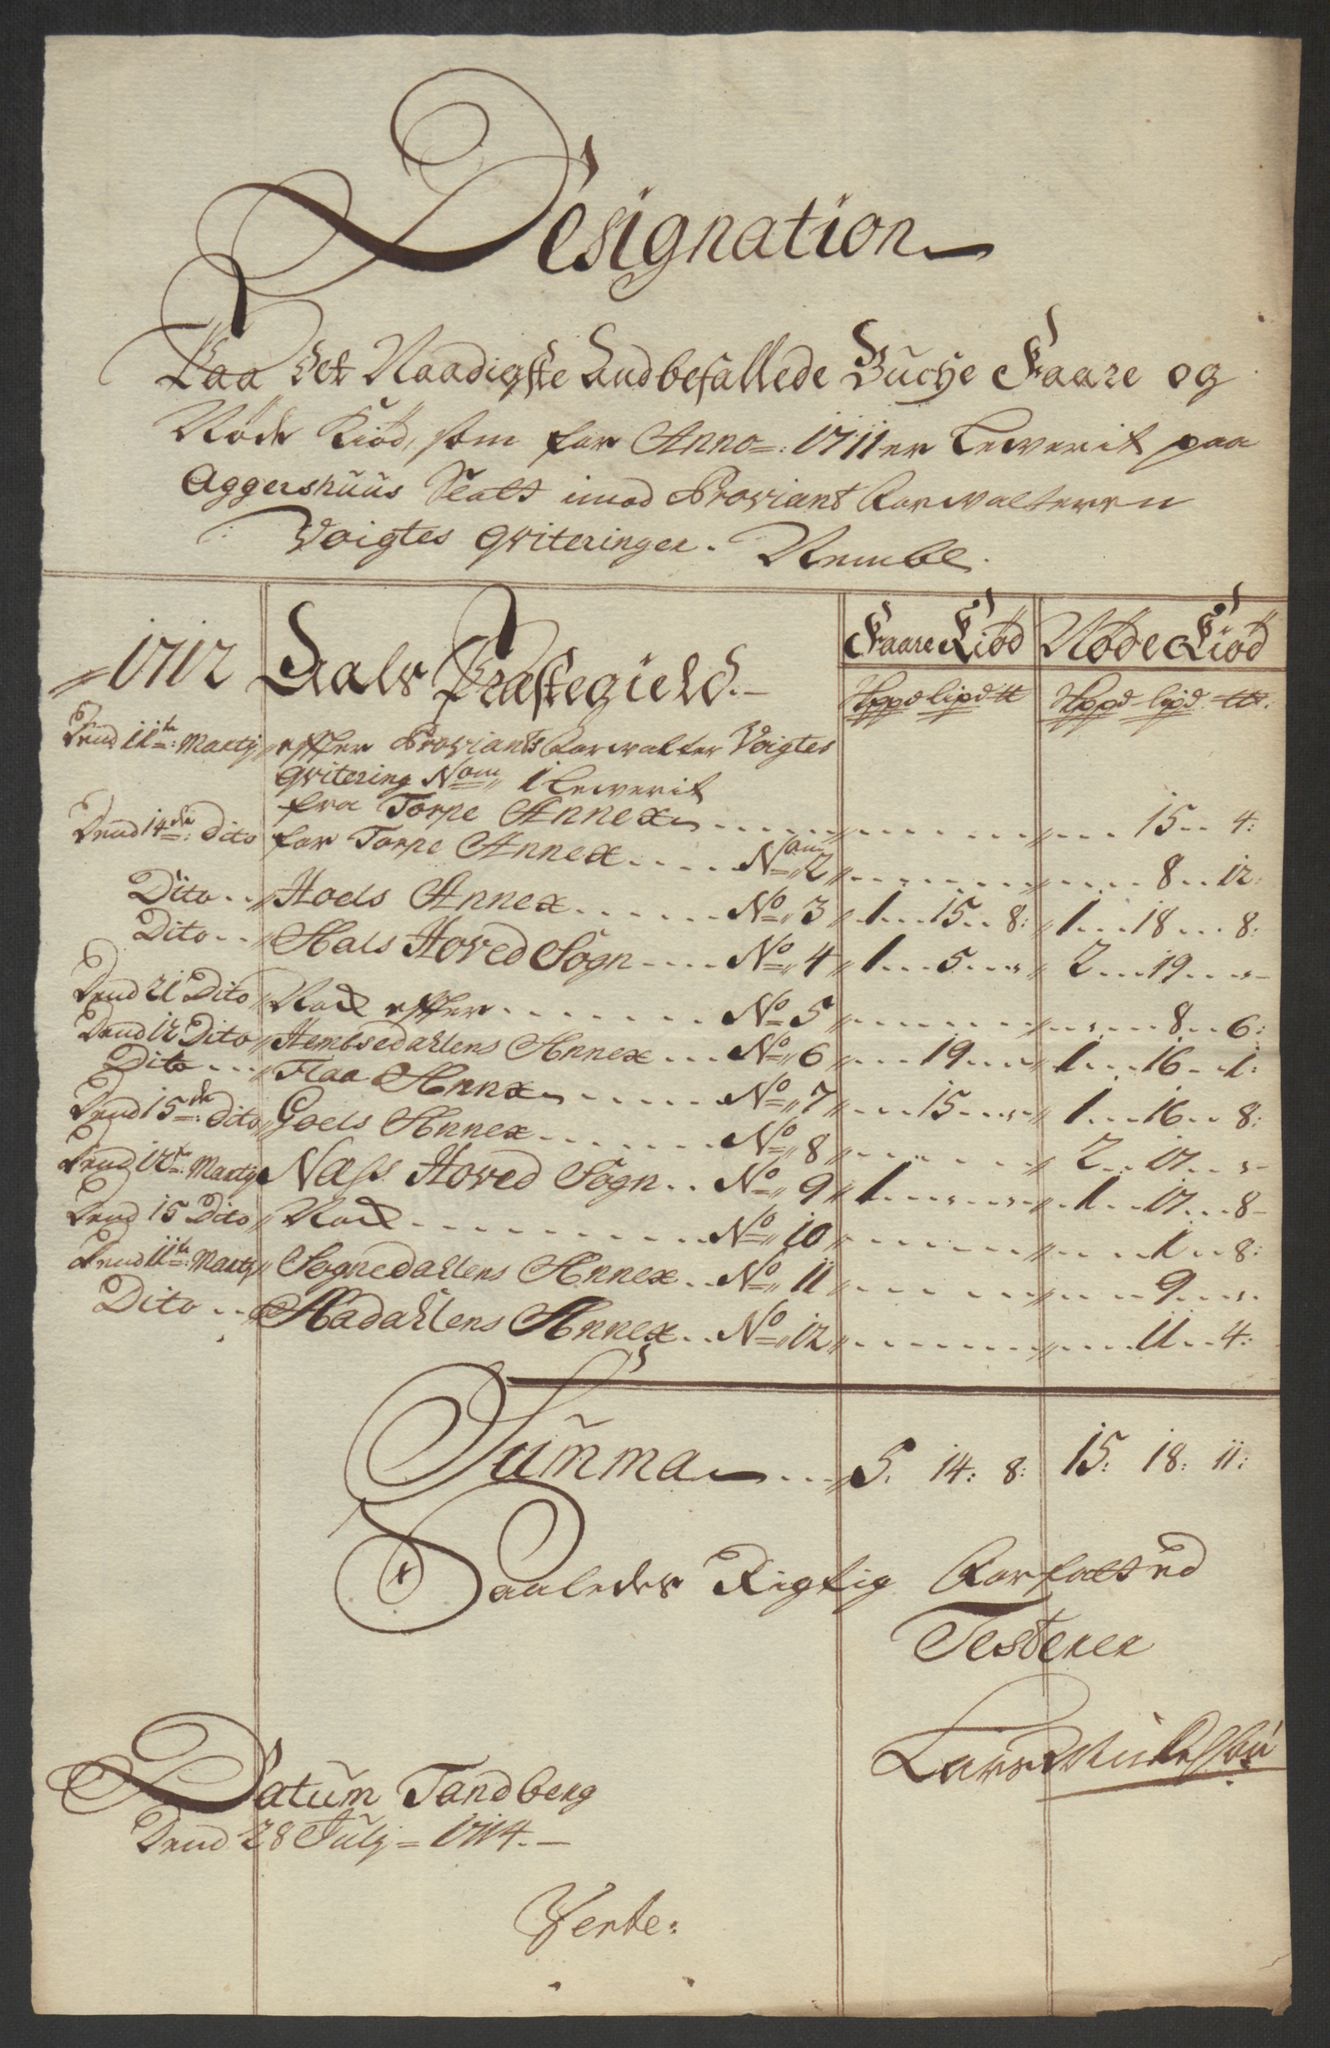 Designation
Paa det Naadigste Andbefallede Bucke Faare og
Nøde Kiød, som for Anno 1711 er Leverit paa
Aggershuus Slott imod Proviant Forvalteren
Voigtes Qviteringer. Nembl.
1712 Aals Præstegield. Faare Kiød Nøde Kiød
Skppd lispd ℔ Skppd lispd ℔.
Dend 11te Martij effter Proviants Forvalter Voigtes
Qvitering No 1 Leverit
fra Torpe Annex 15 4:
Dend 14de Dito for Torpe Annex No 2 8 12:
Dito Hoels Annex No 3 1 15 8: 1 18 8:
Dito Aals Hoved Sogn No 4 1 5 - 2 19 -
Dend 21 Dito Nock effter No 5 8 6:
Dend 12 Dito Hembsedahlens Annex No 6 19 - 1 16 1:
Dito Flaa Annex No 7 15 - 1 16 8:
Dend 15de Dito Goels Annex No 8 2 17 -
Dend 12te Martij Næss Hoved Sogn No 9 1 - - 1 17 8
Dend 15 Dito Nock No 10 1 8:
Dend 11te Martij Sognedahlens Annex No 11 9 -
Dito Aadahlens Annex No 12 11 4:
Summa 5. 14: 8: 15: 18: 11:
Saaledes Rigtig Forfatted
Testerer
Lars
Datum Tandberg
Dend 28 Julij 1714.
Verte: